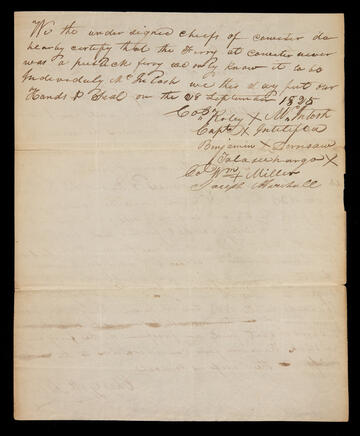 We the under signed chiefs of coweter do
hearby certify that the Ferry at Coweter never
was a publick ferry we only know it to be
Indeviduly Mc Intosh we this day put our
Hands & Seal on the 28 September 1825
Coo Roley X McIntosh
Capt X Intitefca
Benjamin X Sernsaw
Talaseehargo X
Co Wm X Miller
Joseph Marshall